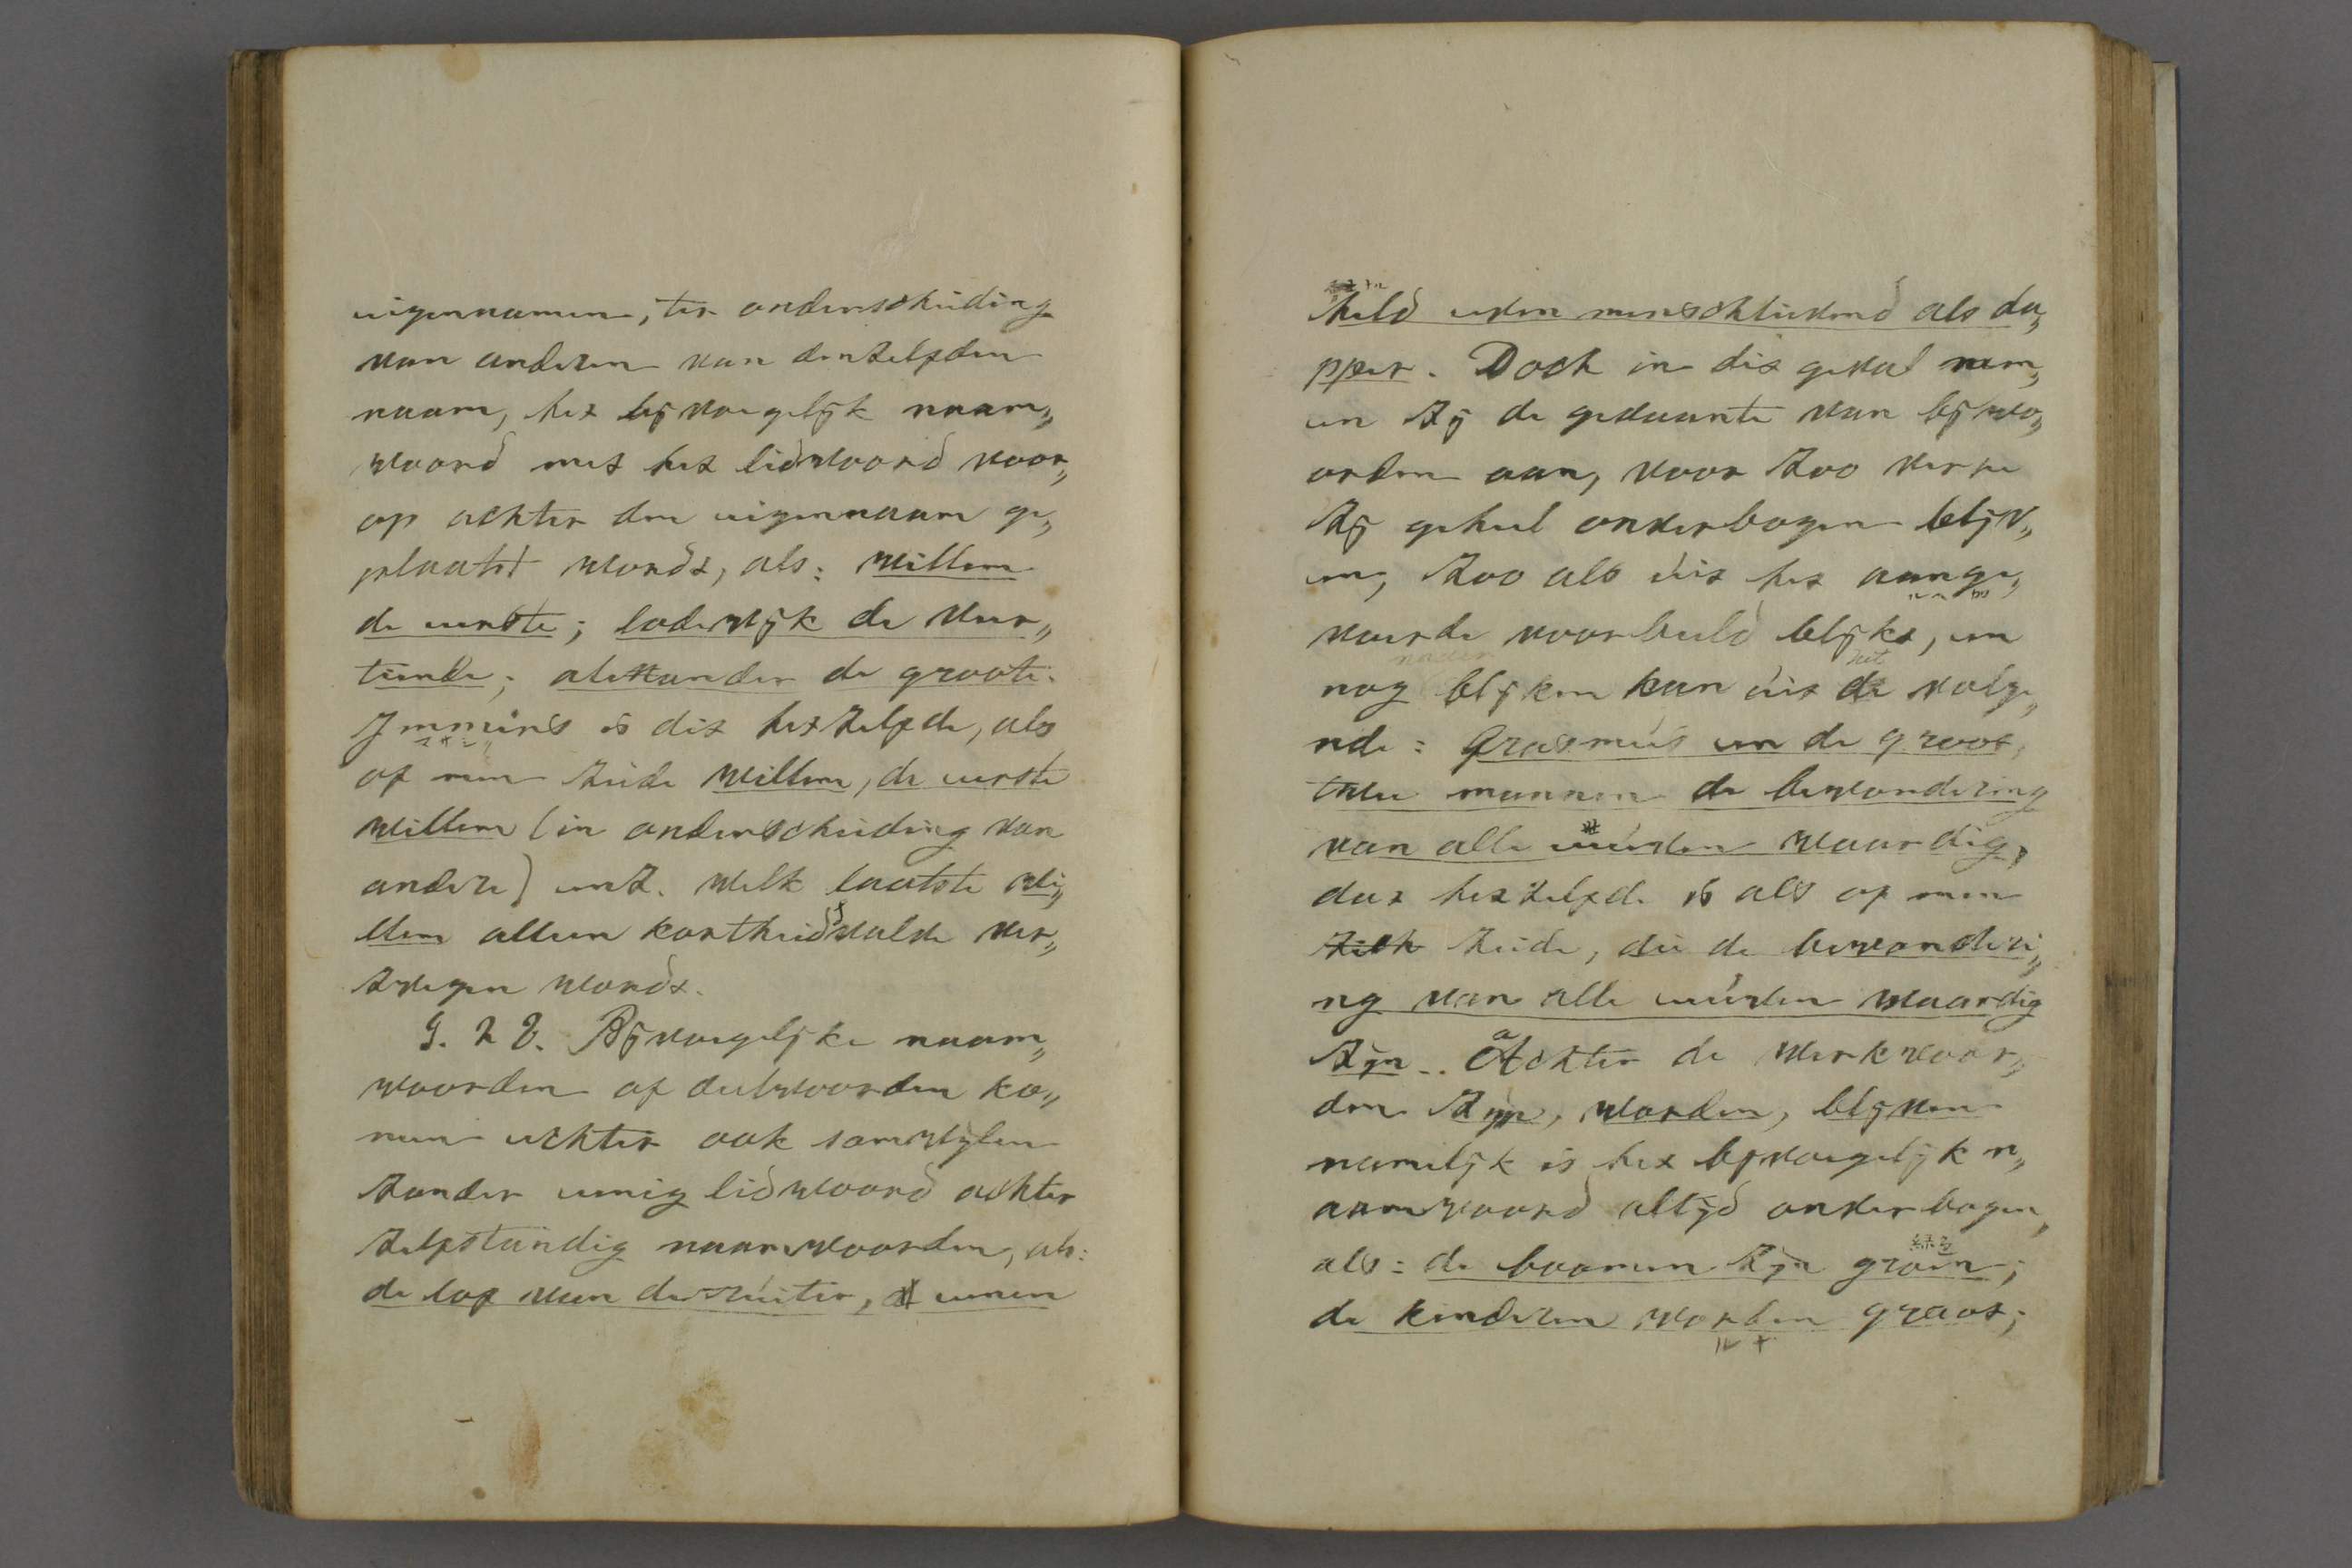 eigennamen, ter onderscheiding
van anderen van denzelfden
naam, het bijvoegelijk naam„
woord met het lidwoord voor„
op achter den eigennaam ge„
plaatst wordt, als: willem
de eerste; lodewijk de veer„
tiende; alexander de groote.
Immers is dit hetzelfde, als
of men zeide willem, de eerste
willem (in onderscheiding van
andere) enz. welk laatste wi„
llem alleen kortheidsvalve ver„
zwegen wordt.
§. 28. Bijvoegelijke naam„
woorden of deelwoorden ko„
men echter ook somwijlen
zonder eenig lidwoord achter
zelfstandig naamwoorden, als:
de lof van de ruiter, eenen
held even menschlievend als da„
pper. Doch in dit geval nem„
en zij de gedaante van bijwo„
orden aan, voor zoo verre
zij geheel onverbogen blijv„
en, zoo als uit het aange„
voerde voorbeeld blijkt, en
nader
het
nog blijken kan uit de volge„
nde: Erasmus en de groot„
twee mannen de bewondering
van alle eeuwen waardig,
dat hetzelfde is als of men
zich zeide, die de bewonderi„
ng van alle eeuwen waardig
zijn.. Achter de werkwoor„
den zijn, worden, blijven
namelijk is het bijvoegelijk n„
aamwoord altijd onverbogen,
als: de boomen zijn groen;
de kinderen worden groot;